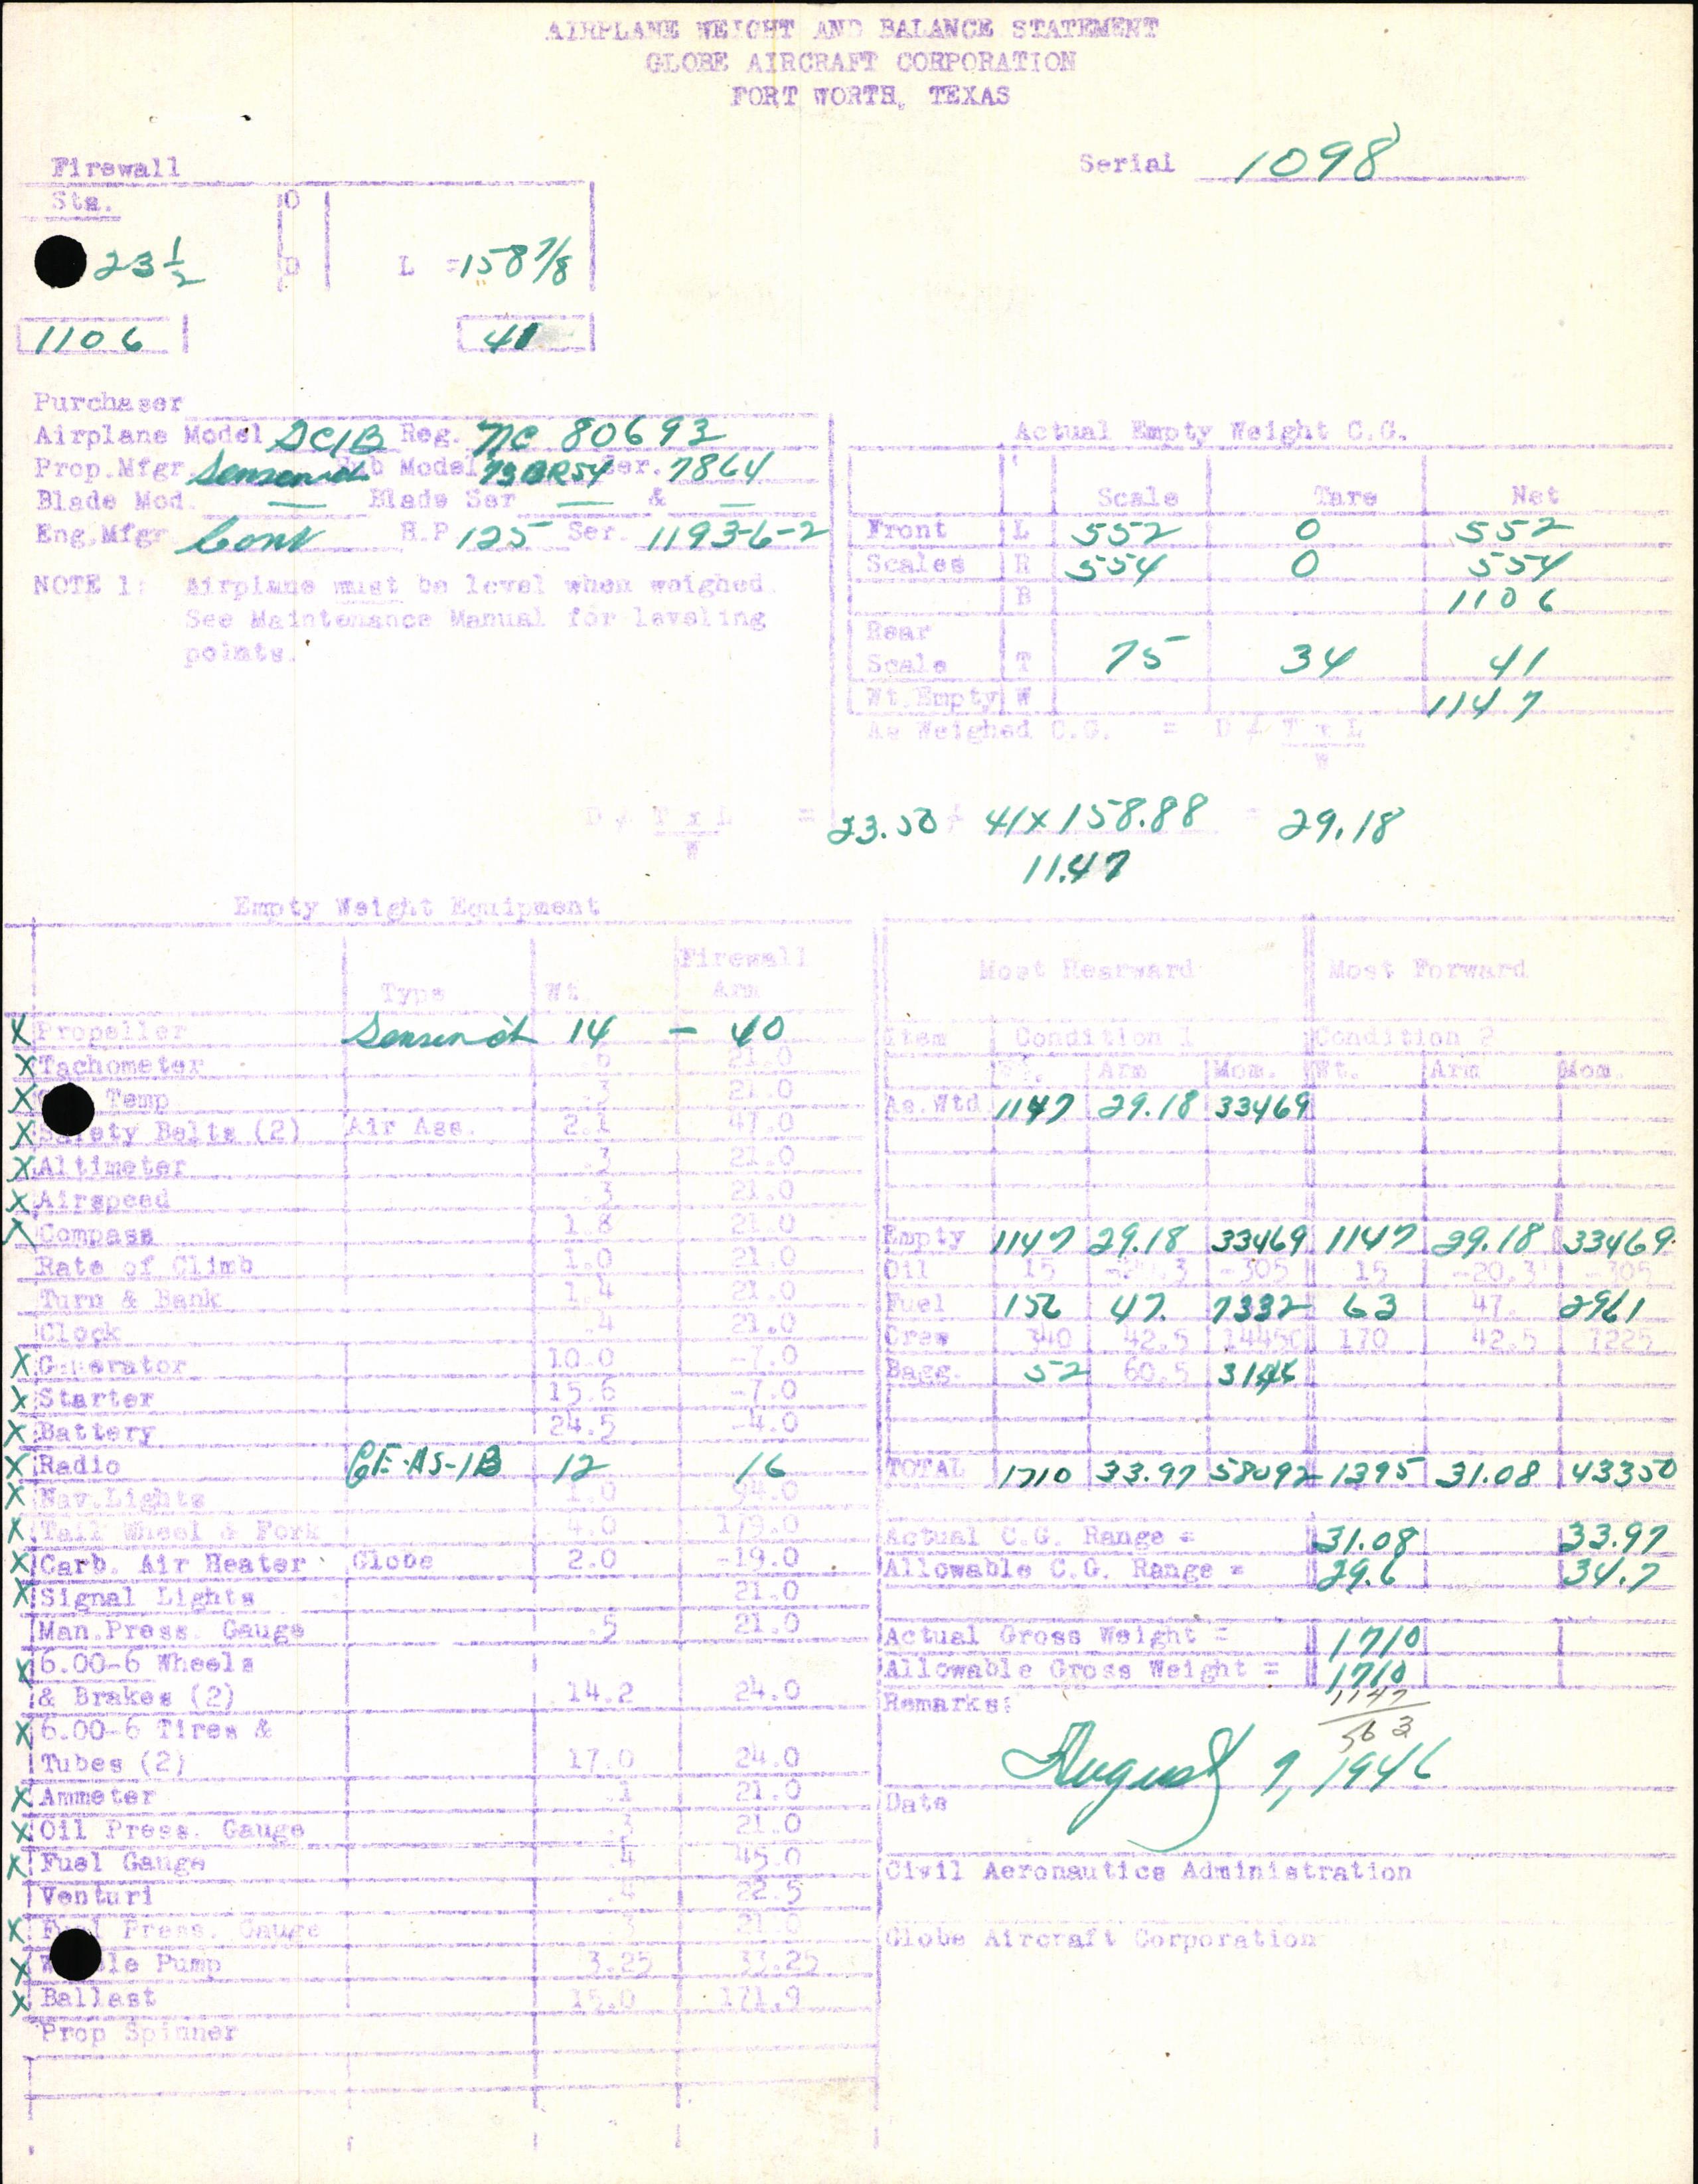 AIRPLANE WEIGHT AND BALANCE STATEMENT
GLOBE AIRCRAFT CORPORATION
FORT WORTH, TEXAS
Serial 1098
Firewall
Sta. O
23 1/2 D L = 158 7/8
1106 41
Purchaser
Airplane Model GC1B Reg. NC 80693
Prop.Mfgr. Sensenich Hub Model 73BR54 Ser. 7864
Blade Mod. — Blade Ser — & —
Eng.Mfgr. Cont H.P. 125 Ser. 11936-2
NOTE 1: Airplane must be level when weighed.
See Maintenance Manual for leveling
points.
Actual Empty Weight C.G.
Scale Tare Net
Front L 552 0 552
Scales R 554 0 554
B 1106
Rear
Scale T 75 34 41
Wt.Empty W 1147
As Weighed C.G. = D ≠ T x L
W
D ≠ T x L = 23.50 ≠ 41 x 158.88 = 29.18
W 1147
Empty Weight Equipment
Type Wt. Firewall Arm
X Propeller Sensenich 14 - 40
X Tachometer 21.0
X Temp .3 21.0
X Safety Belts (2) Air Ass. 2.1 47.0
X Altimeter .3 21.0
X Airspeed .3 21.0
X Compass 1.8 21.0
Rate of Climb 1.0 21.0
Turn & Bank 1.4 21.0
Clock .4 21.0
X Generator 10.0 -7.0
X Starter 15.6 -7.0
X Battery 24.5 -4.0
X Radio GE-AS-1B 12 16
X Nav.Lights 1.0 54.0
X Tail Wheel & Fork 4.0 179.0
X Carb. Air Heater Globe 2.0 -19.0
X Signal Lights 21.0
Man.Press. Gauge .5 21.0
X 6.00-6 Wheels
& Brakes (2) 14.2 24.0
X 6.00-6 Tires &
Tubes (2) 17.0 24.0
X Ammeter .1 21.0
X Oil Press. Gauge .3 21.0
X Fuel Gauge .4 45.0
Venturi .4 22.5
X Fuel Press. Gauge 21.0
X Pump 3.25 33.25
X Ballast 15.0 171.9
Prop Spinner
Most Rearward Most Forward
Item Condition 1 Condition 2
Wt. Arm Mom. Wt. Arm Mom.
As.Wtd 1147 29.18 33469
Empty 1147 29.18 33469 1147 29.18 33469
Oil 15 -20.3 -305 15 -20.3 -305
Fuel 156 47. 7332 63 47. 2961
Crew 340 42.5 14450 170 42.5 7225
Bagg. 52 60.5 3146
TOTAL 1710 33.97 58092 1395 31.08 43350
Actual C.G. Range = 31.08 33.97
Allowable C.G. Range = 29.6 34.7
Actual Gross Weight = 1710
Allowable Gross Weight = 1710
1147
563
Remarks:
August 7, 1946
Date
Civil Aeronautics Administration
Globe Aircraft Corporation